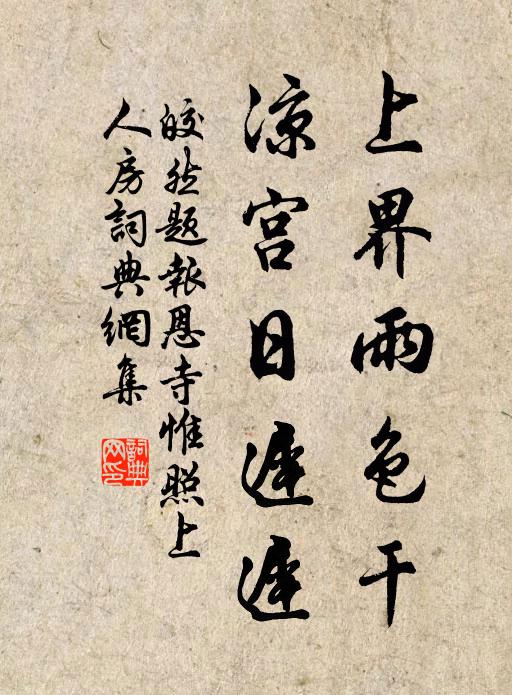 上界雨色干
涼宮日遲遲
皎然題報恩寺惟照上
人房詞典網集
詞典
网印